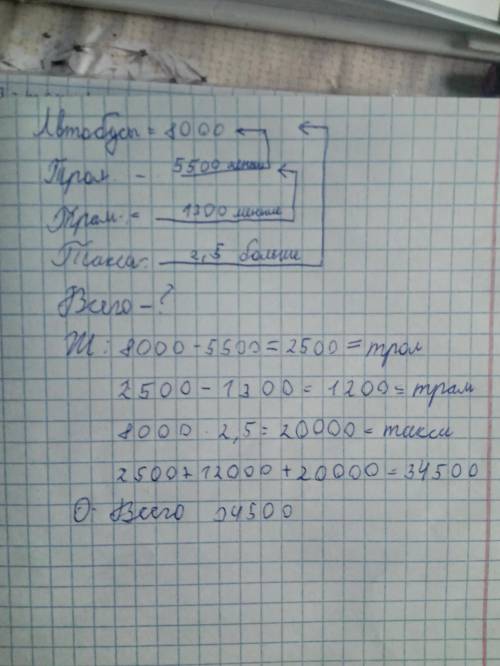 Автобусы = 8000
Трол - 5500 меньше
Трам. - 1300 меньше
Такси: 2,5 больше
Всего - ?
Ж: 8000 - 5500 = 2500 = трол
2500 - 1300 = 1200 = трам
8000 · 2,5 = 20000 = такси
2500 + 12000 + 20000 = 34500
О: Всего 34500